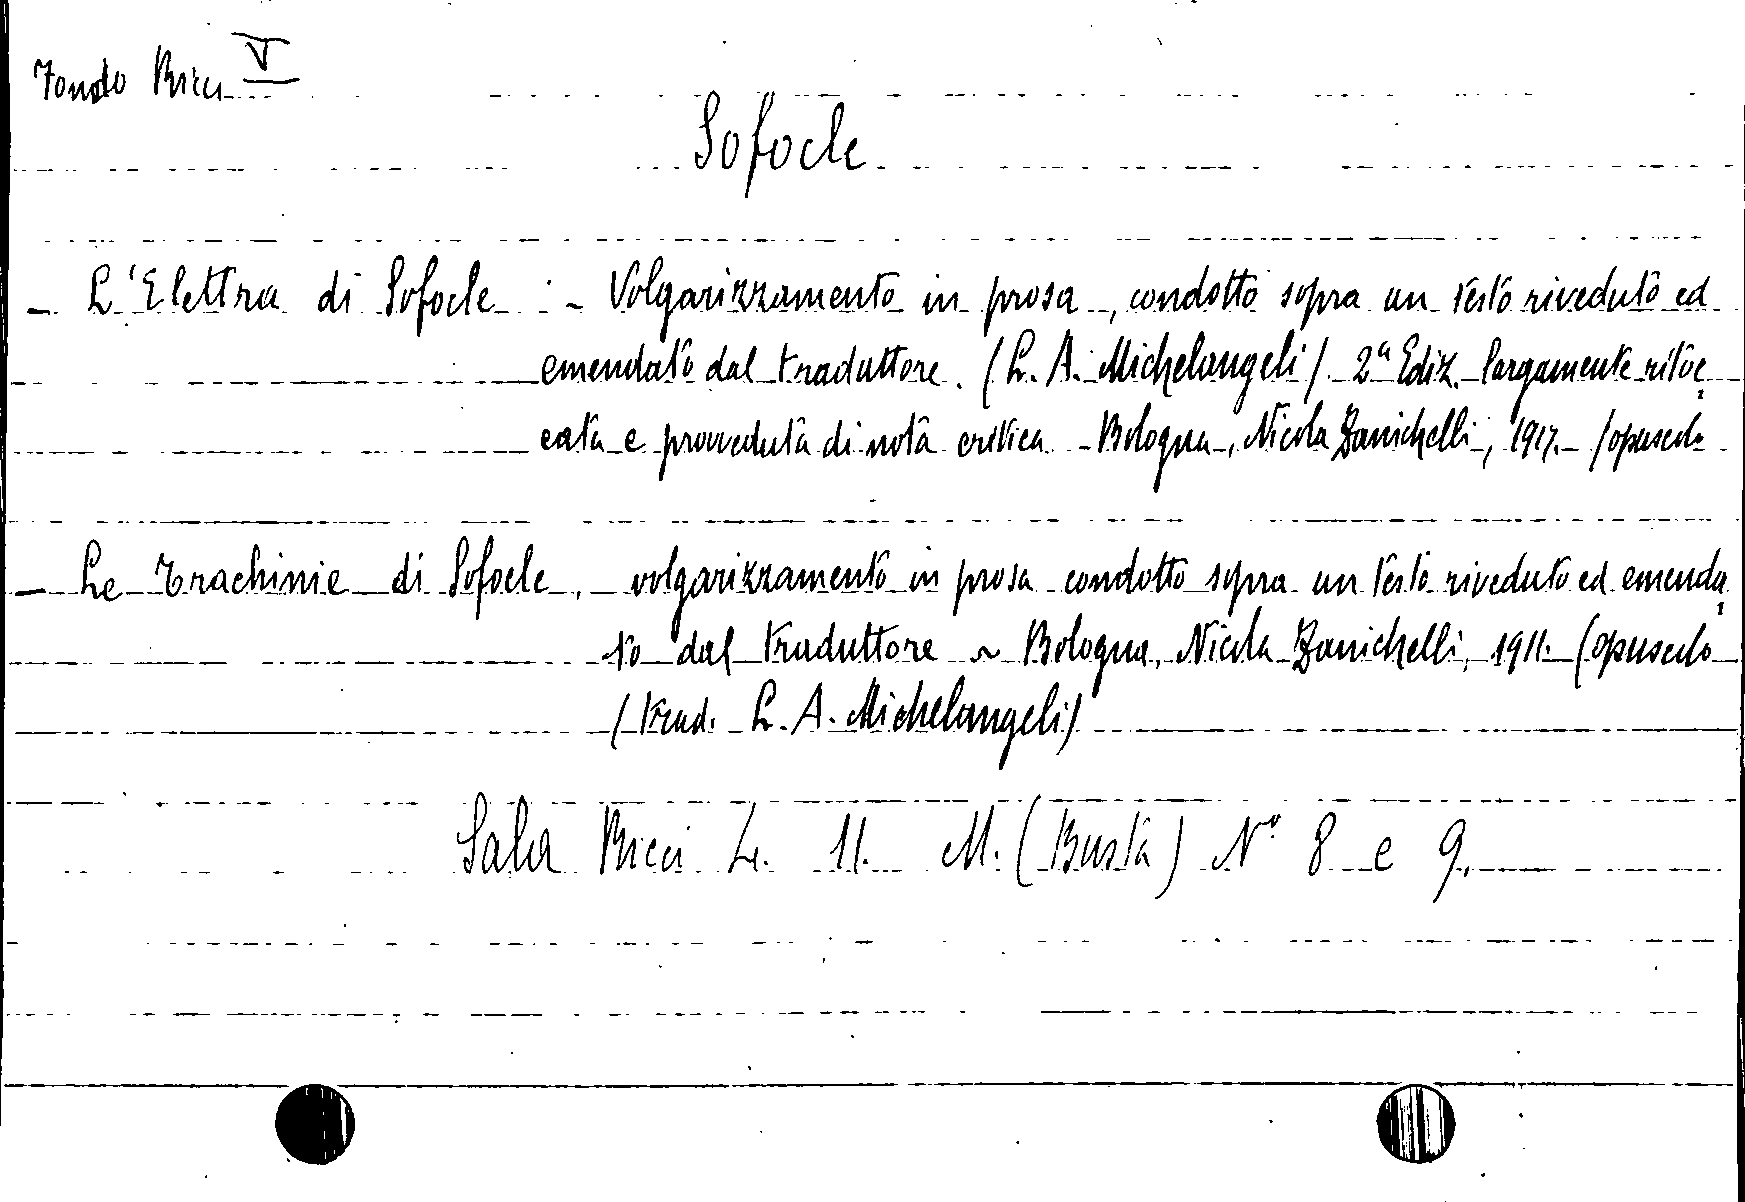 Fondo Ricci V
Sofocle
- L'Elettra di Sofocle : - Volgarizzamento in prosa, condotto sopra un testo riveduto ed
emendato dal traduttore. (L. A. Michelangeli) 2ª Ediz. largamente ritoc
cata e provveduta di nota critica - Bologna, Nicola Zanichelli, 1917. - (opuscolo
- Le Trachinie di Sofocle, volgarizzamento in prosa condotto sopra un testo riveduto ed emenda
to dal traduttore ~ Bologna, Nicola Zanichelli, 1911. (opuscolo
(trad. L. A. Michelangeli)
Sala Ricci L. 11. M. (Busta) N° 8 e 9.